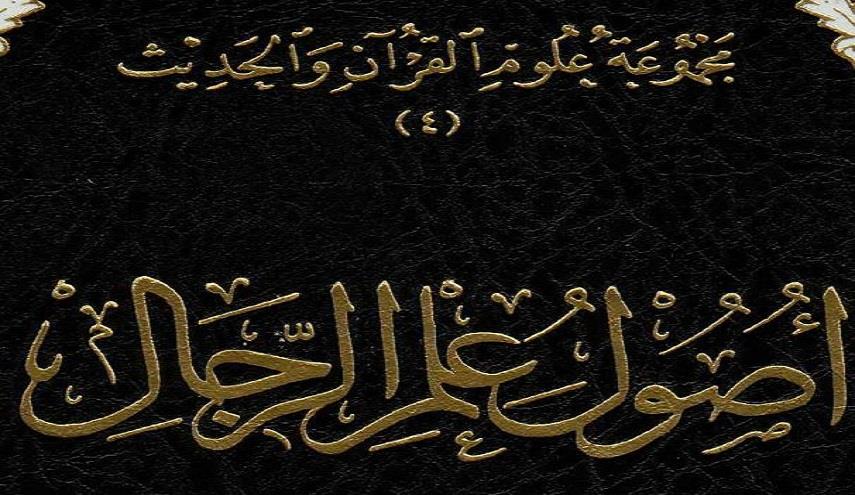 مَجْمُوعَةُ عُلُومِ ٱلْقُرْآنِ وَٱلْحَدِيْث
(٤)
أُصُوْلُ عِلْمِ الرِّجَالِ